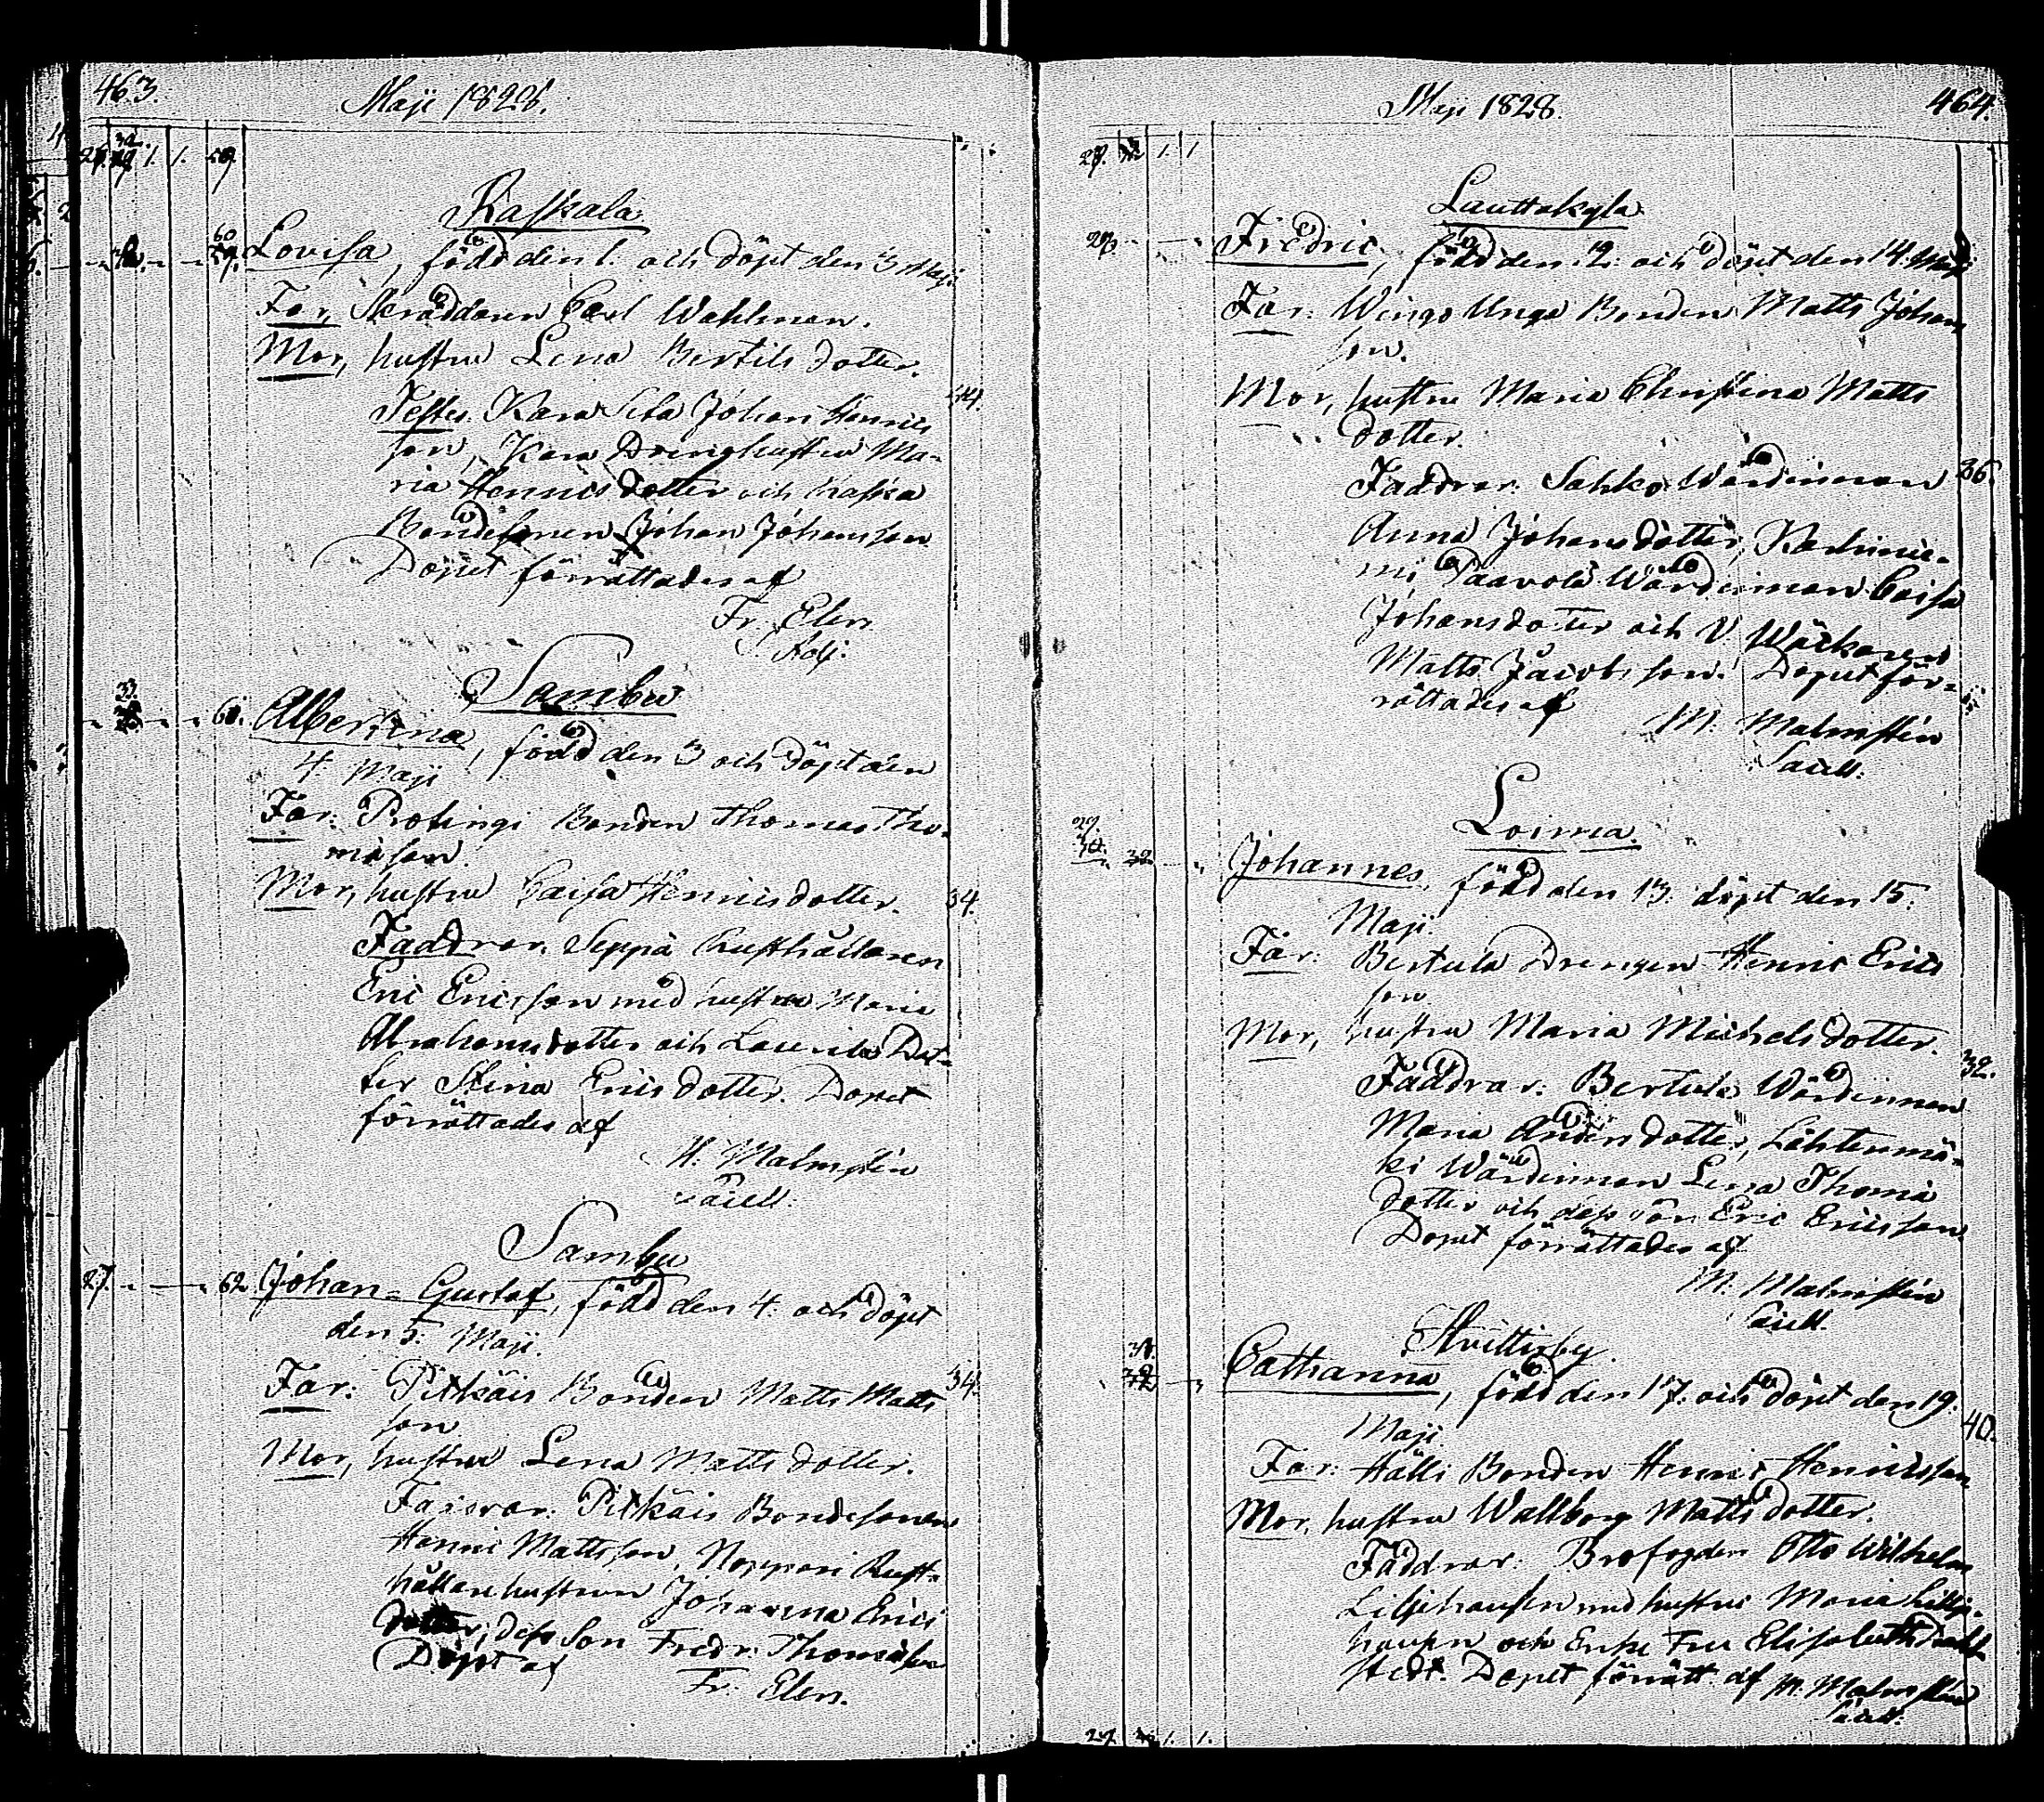 463.
Maji 1828.
Raskala
Lovisa, född den 1. och döpt den 3 Maji.
Far, Skräddaren Carl Wahlman.
Mor, hustru Lena Bertils dotter.
Testes. Kara Johan Henrics
son, Kara Drenghustru Ma-
ria Henrics dotter och Raska
Bondesonen Johan Johansson
Dopet förrättades af
Fr. Elen
Adj.
Sambu
61. Albertina, född den 3 och döpt den
4. Maji
Far: Bonden Thomas Tho-
mæson
Mor, hustru Caisa Henrics dotter.
34.
Faddrar. Seppä Rusthållaren
Eric Ericsson med hustru Maria
Abrahamsdotter och Laurila Dot-
ter Stina Erics dotter. Dopet
förrättades af
M. Malmstén
Sacell.
Sambu
27. 62. Johan Gustaf, född den 4. och döpt
den 5. Maji.
Far: Pitkäis Bonden Matts Matts
34.
son
Mor, hustru Lena Matts dotter.
Faddrar: Pitkäis Bondesonen
Henric Mattsson, Noppari Rust-
hållarehustrun Johanna Erics
dotter, dess son Fredr. Thomæson
Döpt af
Fr. Elen.
Maji 1828.
464.
Lauttakylä
Fredric, född den 12. och döpt den 14. Maji
Far: Wingo Unga Bonden Matts Johans
son.
Mor, hustru Maria Christina Matts
dotter.
36.
Faddrar: Sahko Wärdinnan
Anna Johans dotter, Karhinie-
mi Paavola Wärdinnan Caisa
Johansdotter och V. Wäckaren
Matts Jacobsson. Dopet för-
rättades af
M. Malmstén
Sacell.
Loima
Johannes, född den 13. döpt den 15.
Maji.
Far: Bertula Drengen Henric Erics
son
Mor, hustru Maria Michels dotter.
32.
Faddrar: Bertula Wärdinnan
Maria Anders dotter, Lähtenmä-
ki Wärdinnan Lena Thomæ
dotter och dess son Eric Ericsson
Dopet förrättades af
M. Malmstén
Sacell.
Hvittisby
Catharina, född den 17. och döpt den 19.
Maji
40.
Far: Hälli Bonden Henric Henricsson
Mor, hustru Wallborg Matts dotter.
Faddrar: Brofogden Otto Wilhelm
Liljehausen med hustru Maria Lillje-
hausen och Enke Fru Elisabeth
stedt. Dopet förrätt. af M. Malmstén
Sacell.